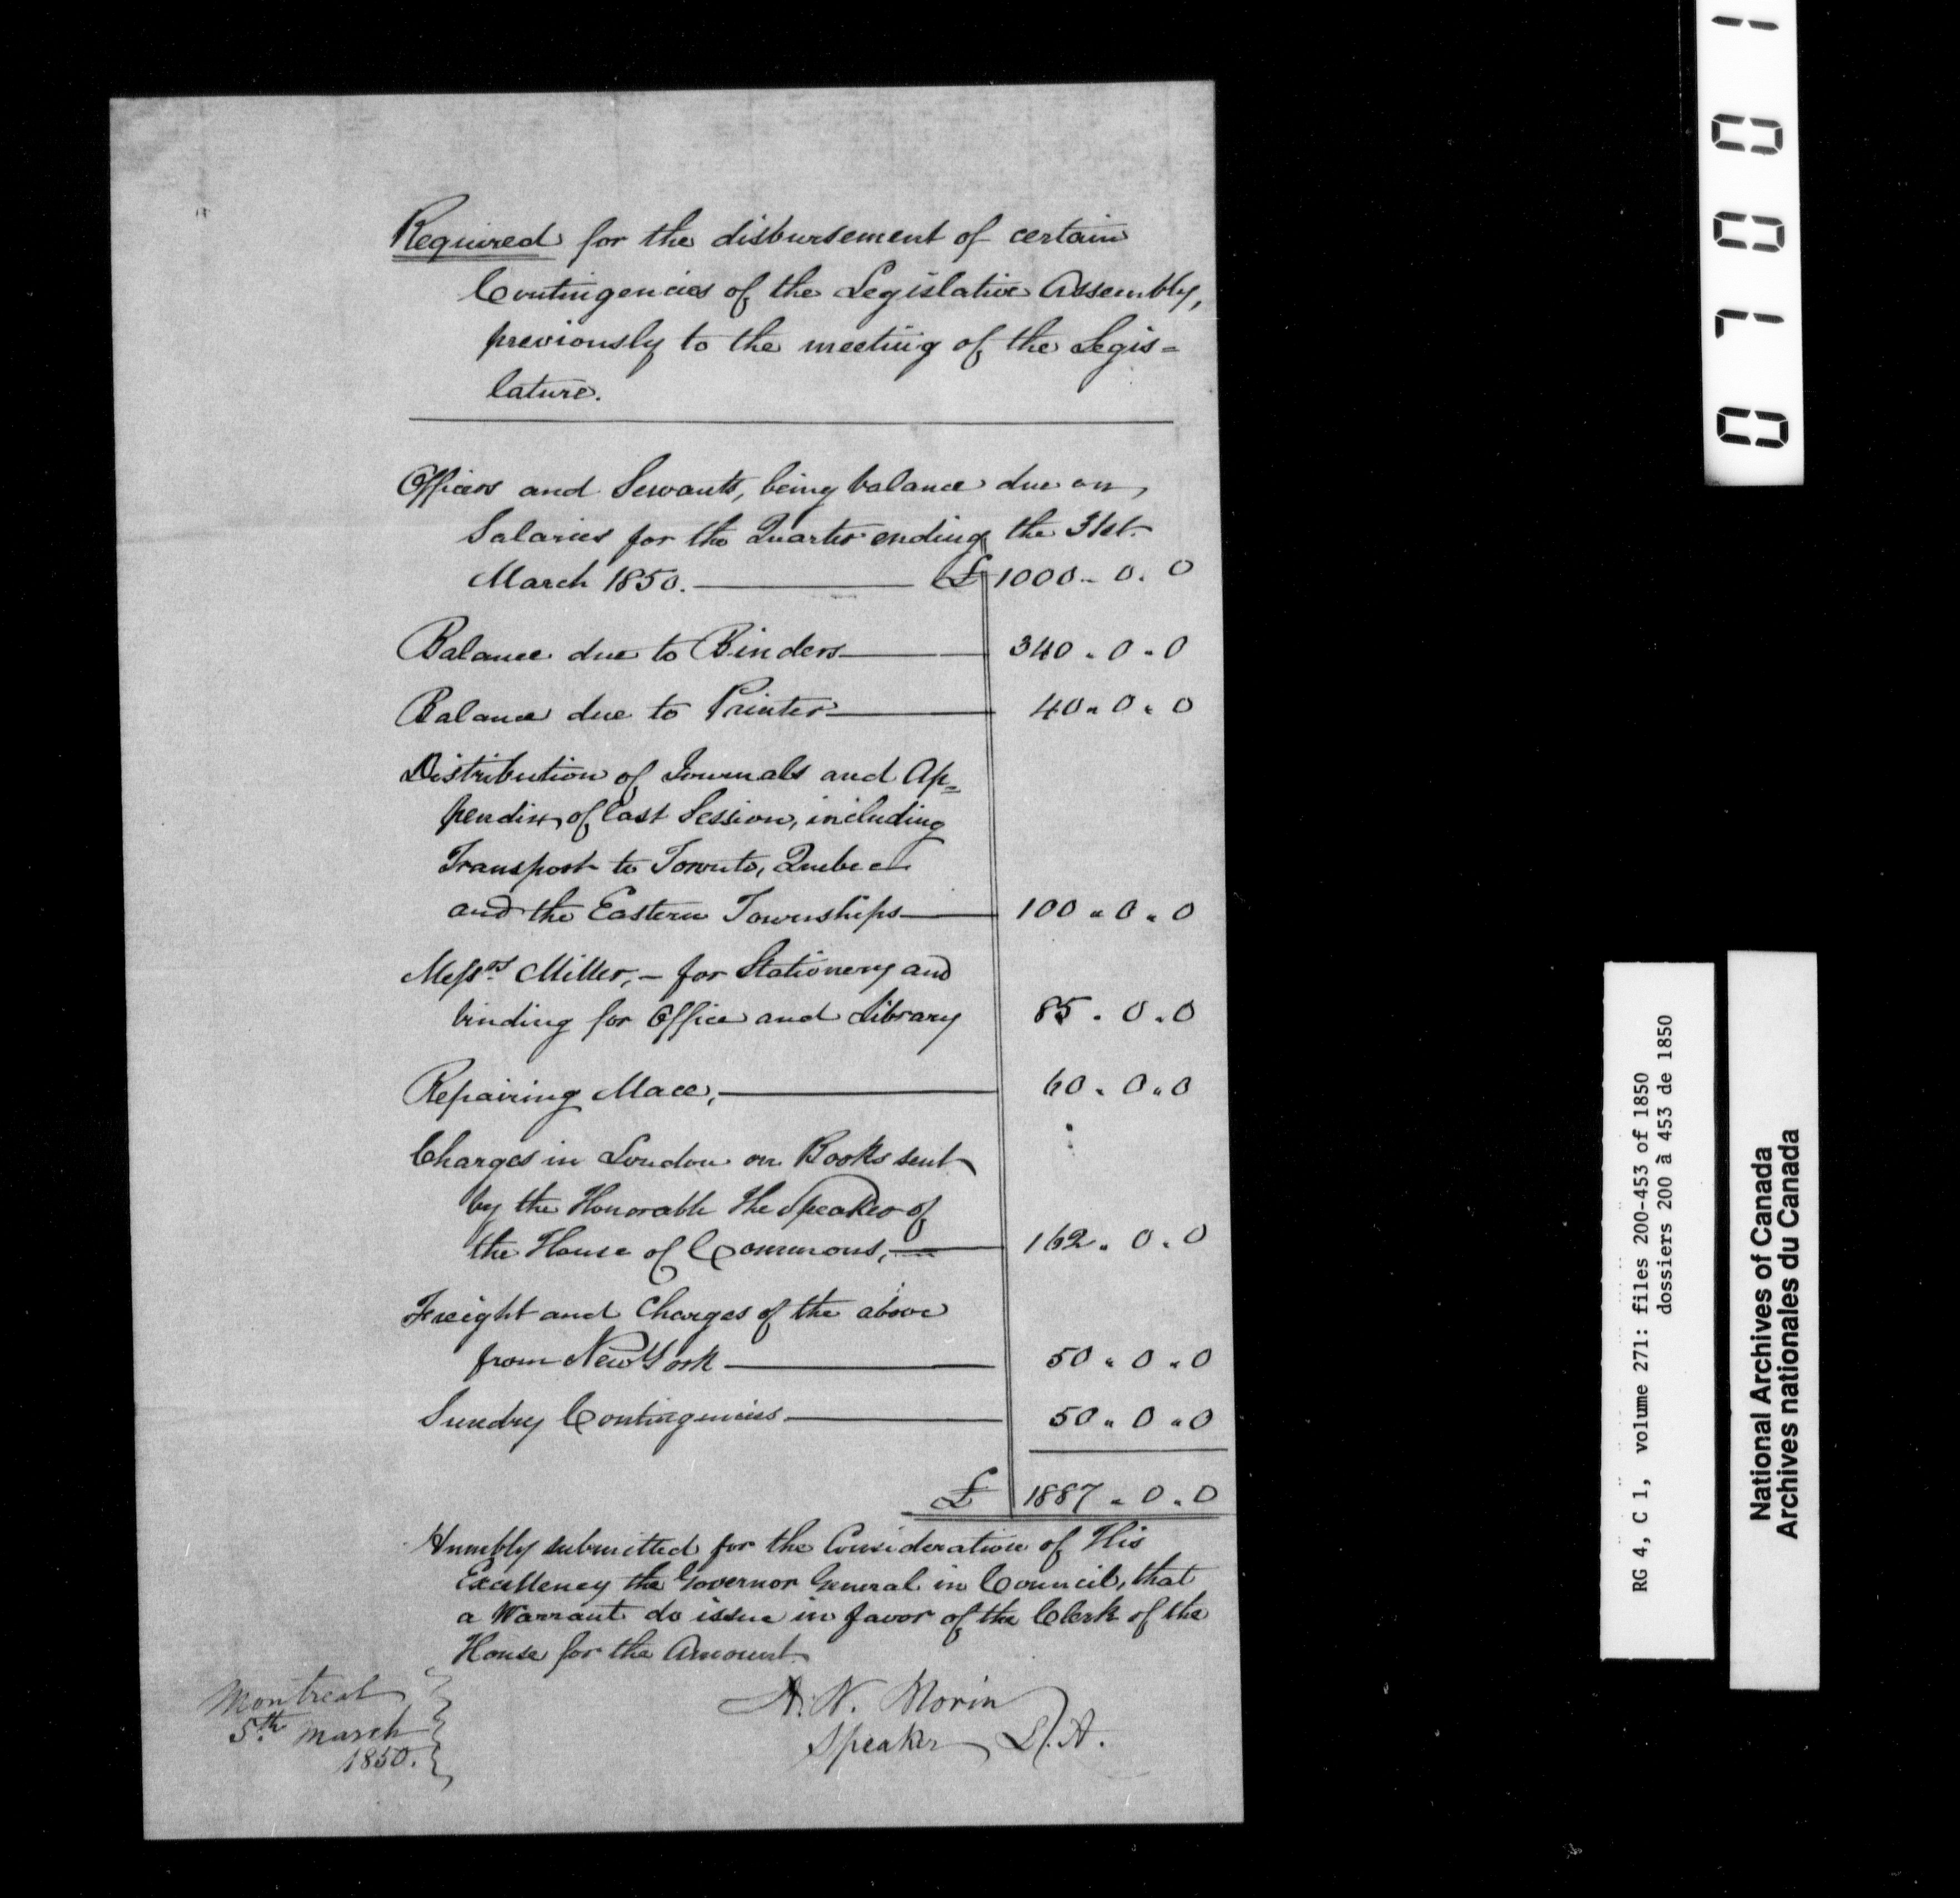 Required for the disbursement of certain
Contingencies of the Legislative Assembly,
previously to the meeting of the Legis=
lature.
Officers and Servants, being balance due on
Salaries for the Quarter ending the 31st
March 1850. £ 1000 .. 0 . 0
Balance due to Binders 340 . 0 . 0
Balance due to Printer 40 . 0 . 0
Distribution of Journals and Ap=
pendix of last Session, including
Transport to Toronto, Quebec
and the Eastern Townships 100 . 0 . 0
Messrs. Miller, – for Stationery and
binding for Office and Library 85 . 0 . 0
Repairing Mace, 60 . 0 . 0
Charges in London on Books sent
by the Honorable the Speaker of
the House of Commons, 162 . 0 . 0
Freight and Charges of the above
from New York 50 . 0 . 0
Sundry Contingencies 50 . 0 . 0
£ 1887 . 0 . 0
Humbly submitted for the Consideration of His
Excellency the Governor General in Council, that
a Warrant do issue in favor of the Clerk of the
House for the Amount.
Montreal
5th. March
1850.
A. N. Morin
Speaker L. A.
070001
RG 4, C 1, volume 271: files 200-453 of 1850
dossiers 200 à 453 de 1850
National Archives of Canada
Archives nationales du Canada